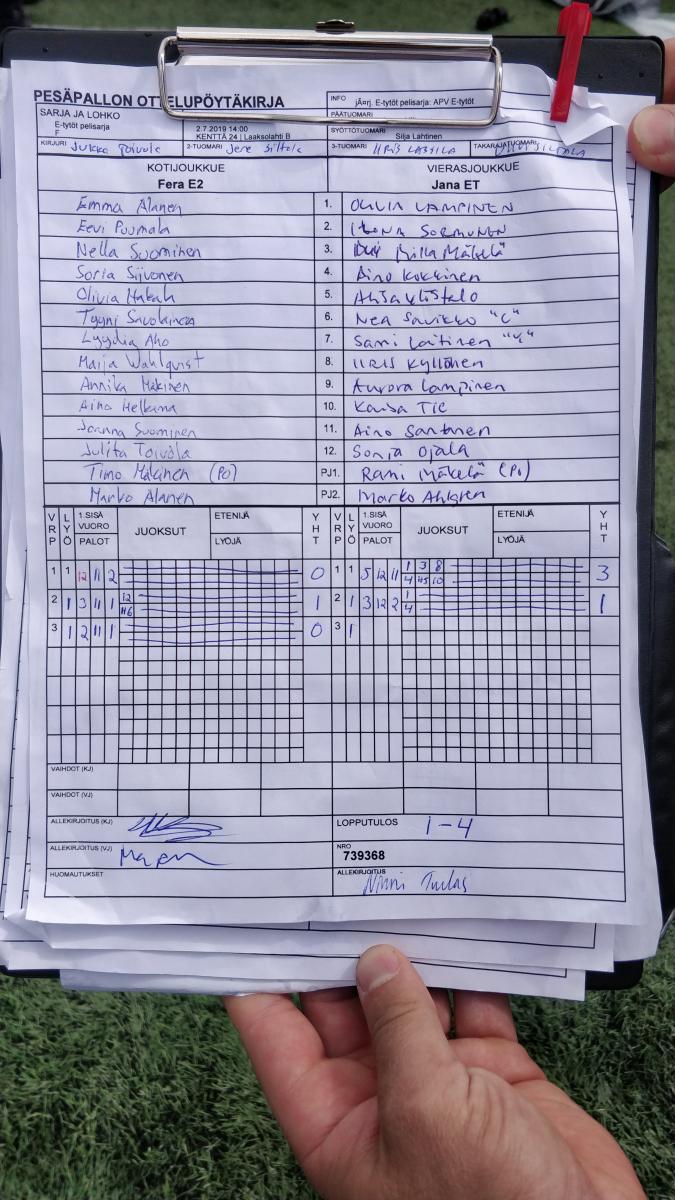 PESÄPALLON OTTELUPÖYTÄKIRJA
INFO jÃ¤rj. E-tytöt pelisarja: APV E-tytöt
PÄÄTUOMARI
SARJA JA LOHKO
E-tytöt pelisarja
F
2.7.2019 14:00
KENTTÄ 24 | Laaksolahti B
SYÖTTÖTUOMARI Silja Lahtinen
KIRJURI Jukka Toivola 2-TUOMARI Jere Siltala 3-TUOMARI IIRIS LASSILA TAKARAJATUOMARI
KOTIJOUKKUE VIERASJOUKKUE
Fera E2 Jana ET
Emma Alanen 1. OLIVIA LAMPINEN
Eevi Puumala 2. SORMUNEN
Nella Suominen 3. Milla Mäkelä
Sonja Siivonen 4. Aino Kokkinen
Olivia Hakala 5.
Tyyni Savolainen 6. Nea Savikko "C"
Lyydia Aho 7. Sami Laitinen
Maija Wahlqvist 8. IIRIS Kyllönen
Annika Mäkinen 9. Aurora Lampinen
Aino 10. Kaisa
Joanna Suominen 11. Aino Santanen
Julita Toivola 12. Sonja Ojala
Timo Mäkinen (PO) PJ1. Rami Mäkelä (PO)
Marko Alanen PJ2. Marko Ahlgren
VRP LYÖ 1.SISÄ VUORO PALOT JUOKSUT ETENIJÄ LYÖJÄ YHT VRP LYÖ 1.SISÄ VUORO PALOT JUOKSUT ETENIJÄ LYÖJÄ YHT
1 1 12 11 2 0 1 1 5 12 11 1 3 8 3
4 45 10
2 1 3 11 1 12 1 2 1 3 12 2 1 1
116 4
3 1 2 11 1 0 3 1
VAIHDOT (KJ)
VAIHDOT (VJ)
ALLEKIRJOITUS (KJ) LOPPUTULOS 1-4
ALLEKIRJOITUS (VJ) NRO
739368
HUOMAUTUKSET ALLEKIRJOITUS